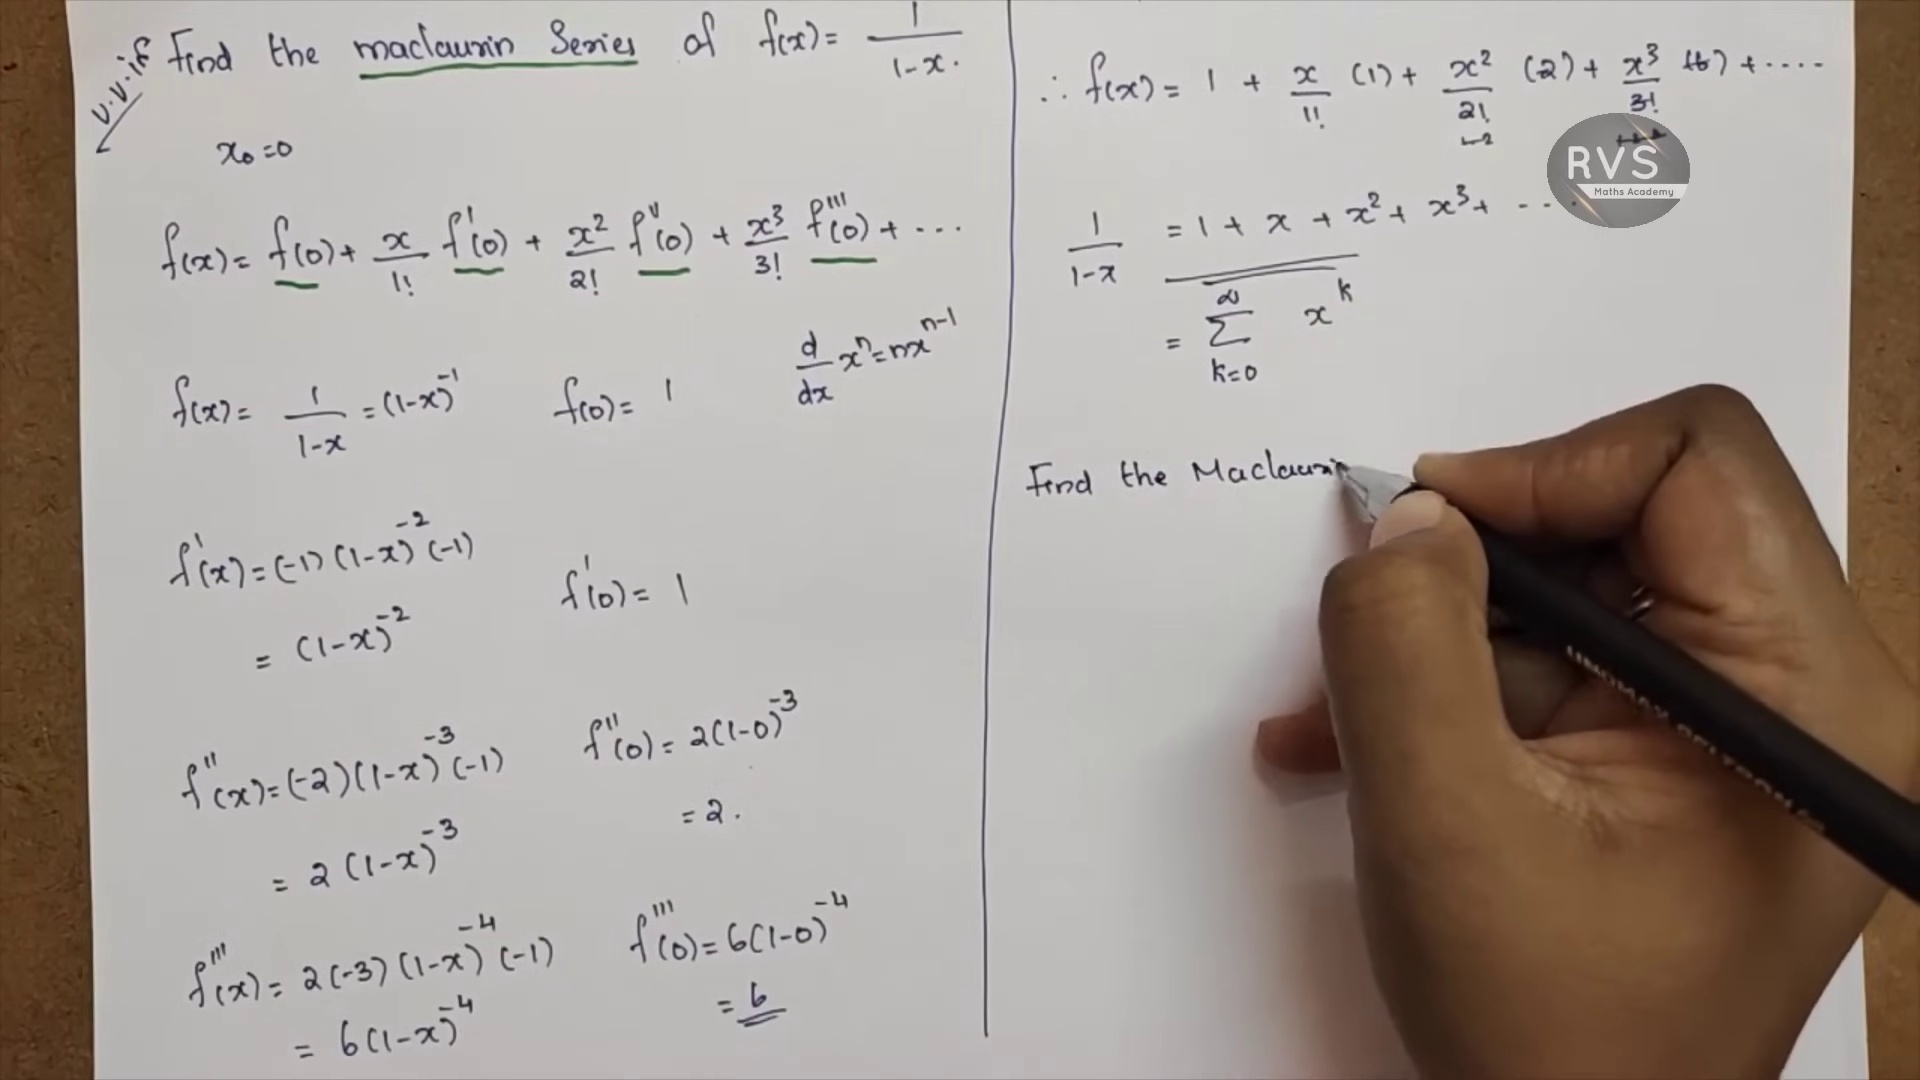 v.v.if Find the maclaurin Series of f(x) = 1/(1-x).
x₀=0
f(x) = f(0) + x/1! f'(0) + x²/2! f''(0) + x³/3! f'''(0) + ...
f(x) = 1/(1-x) = (1-x)⁻¹ f(0) = 1 d/dx xⁿ = nxⁿ⁻¹
f'(x) = (-1)(1-x)⁻²(-1) f'(0) = 1
= (1-x)⁻²
f''(x) = (-2)(1-x)⁻³(-1) f''(0) = 2(1-0)⁻³
= 2(1-x)⁻³ = 2.
f'''(x) = 2(-3)(1-x)⁻⁴(-1) f'''(0) = 6(1-0)⁻⁴
= 6(1-x)⁻⁴ = 6
∴ f(x) = 1 + x/1! (1) + x²/2! (2) + x³/3! (6) + ....
RVS
Maths Academy
1/(1-x) = 1 + x + x² + x³ + ....
= ∞ Σ k=0 xᵏ
Find the Maclauri
UNOMAX